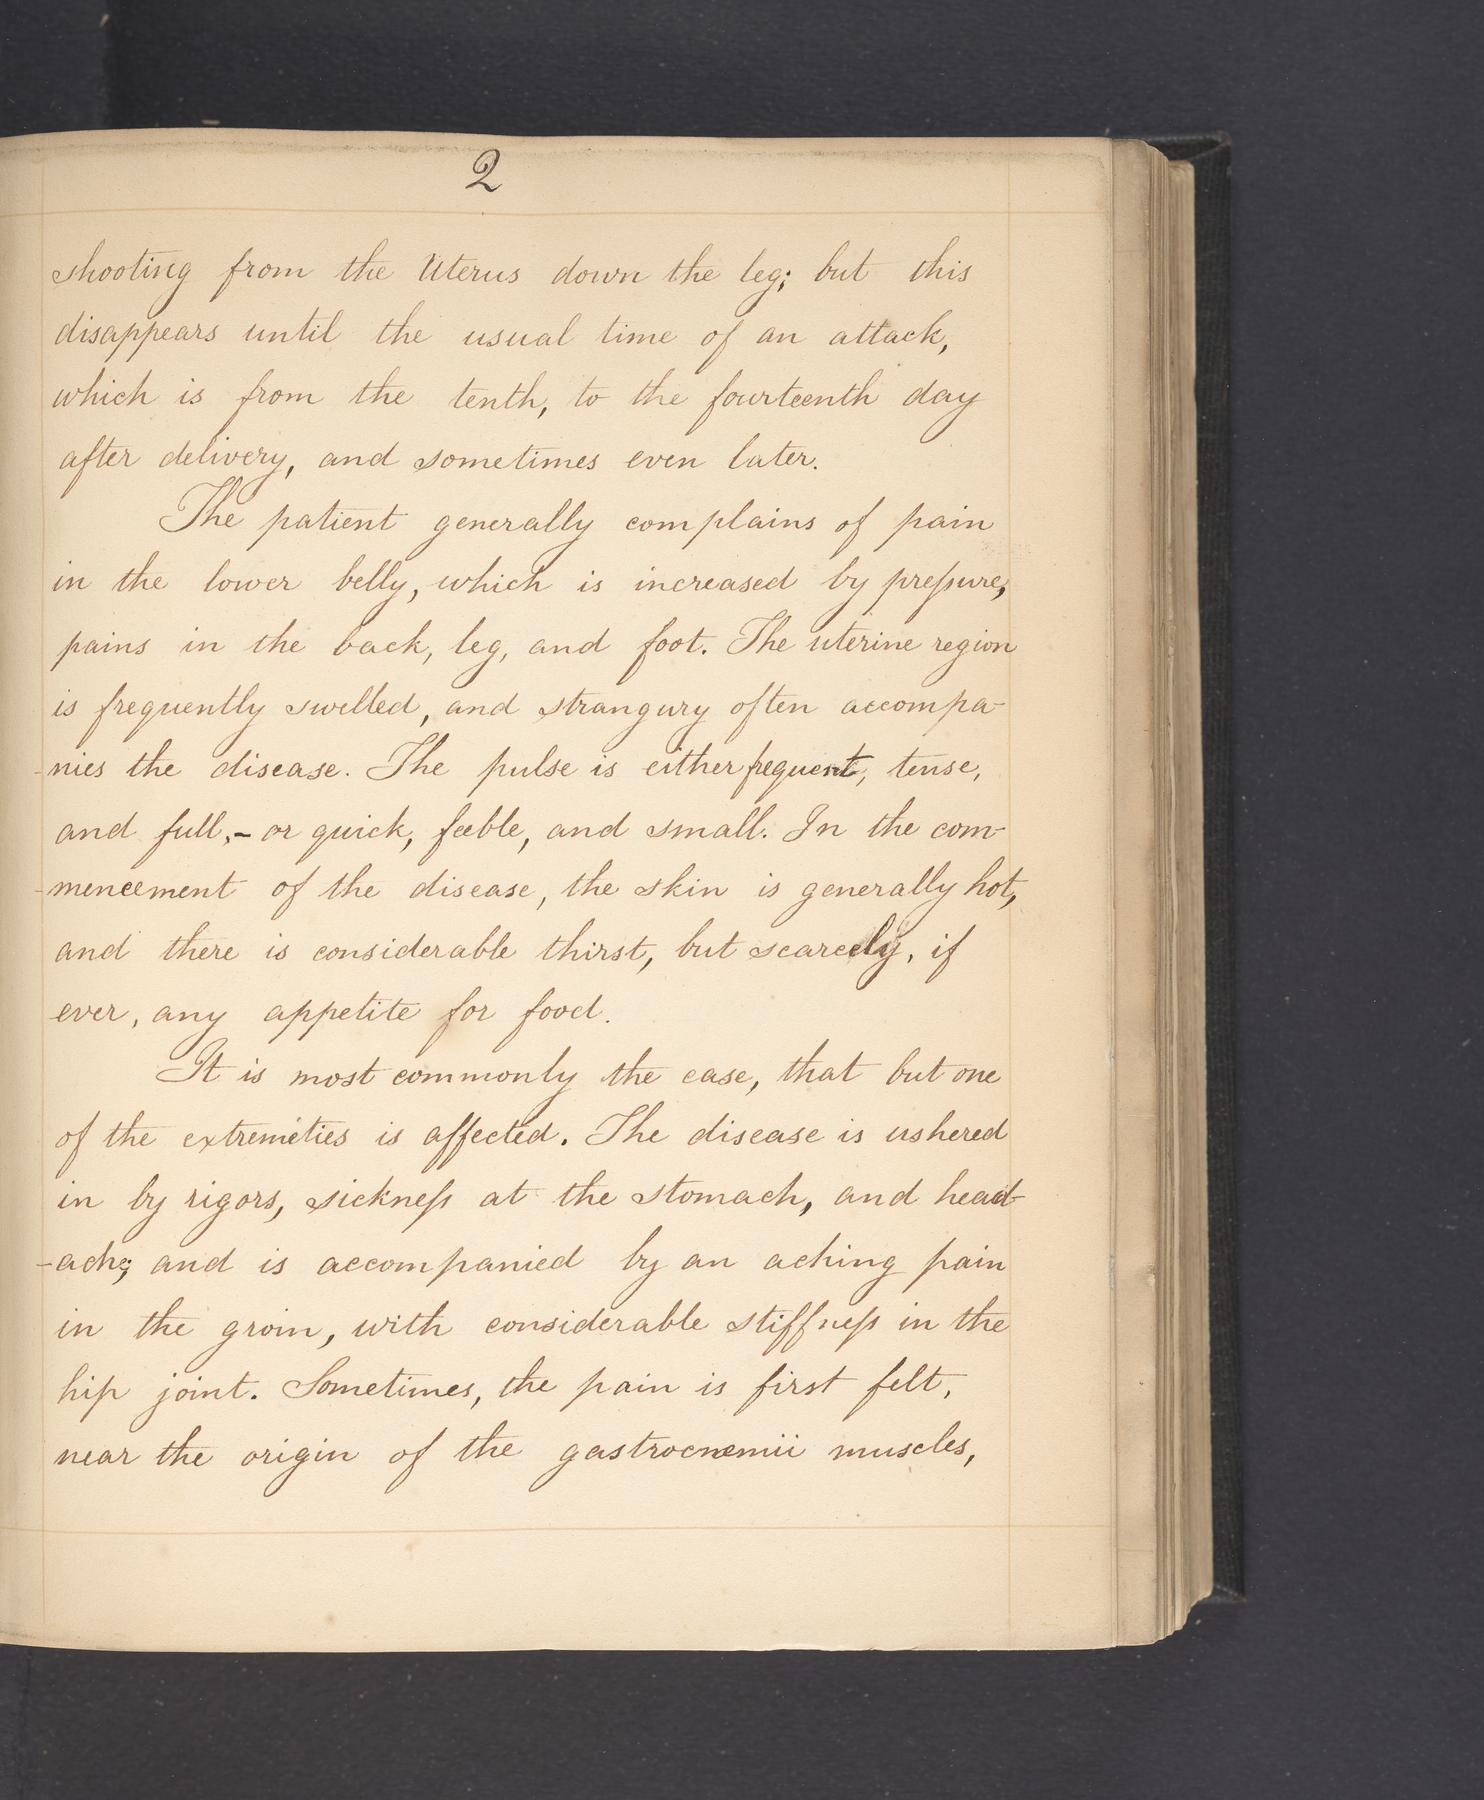 2
shooting from the Uterus down the leg; but this
disappears until the usual time of an attack,
which is from the tenth, to the fourteenth day
after delivery, and sometimes even later.
The patient generally complains of pain
in the lower belly, which is increased by preſsure,
pains in the back, leg, and foot. The uterine region
is frequently swelled, and strangury often accompa-
nies the disease. The pulse is either frequent, tense,
and full,- or quick, feeble, and small. In the com-
-mencement of the disease, the skin is generally hot,
and there is considerable thirst, but scarcely, if
ever, any appetite for food.
It is most commonly the case, that but one
of the extremeties is affected. The disease is ushered
in by rigors, sickneſs at the stomach, and head-
-ache; and is accompanied by an aching pain
in the groin, with considerable stiffneſs in the
hip joint. Sometimes, the pain is first felt,
near the origin of the gastrocnemii muscles,